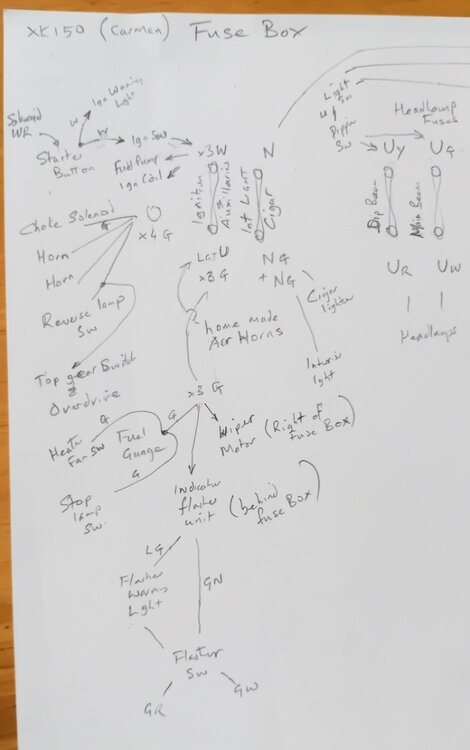 XK150 (Carmen) Fuse Box
Solenoid
WR
W
Ign Warning
Light
Starter
Button
W
Ign Sw
Fuel Pump
Ign Coil
x3W
Ignition
Auxillaries
N
Int Light
Cigar
Light
Sw
U
Dipper
Sw
Headlamp
Fuses
UY
UG
Dip Beam
Main Beam
UR
UW
Headlamps
Choke Solenoid
G
x4G
Horn
Horn
Reverse lamp
Sw
Top gear Switch
Overdrive
U
x3G
NG
+ NG
Cigar
lighter
Interior
light
home made
Air Horns
x3G
G
G
Heater
Fan Sw
Fuel
Guage
G
Stop
lamp
Sw.
Wiper
Motor
(Right of
fuse Box)
Indicator
flasher
unit
(behind
fuse Box)
LG
GN
Flasher
Warng
Light
Flasher
Sw
GR
GW